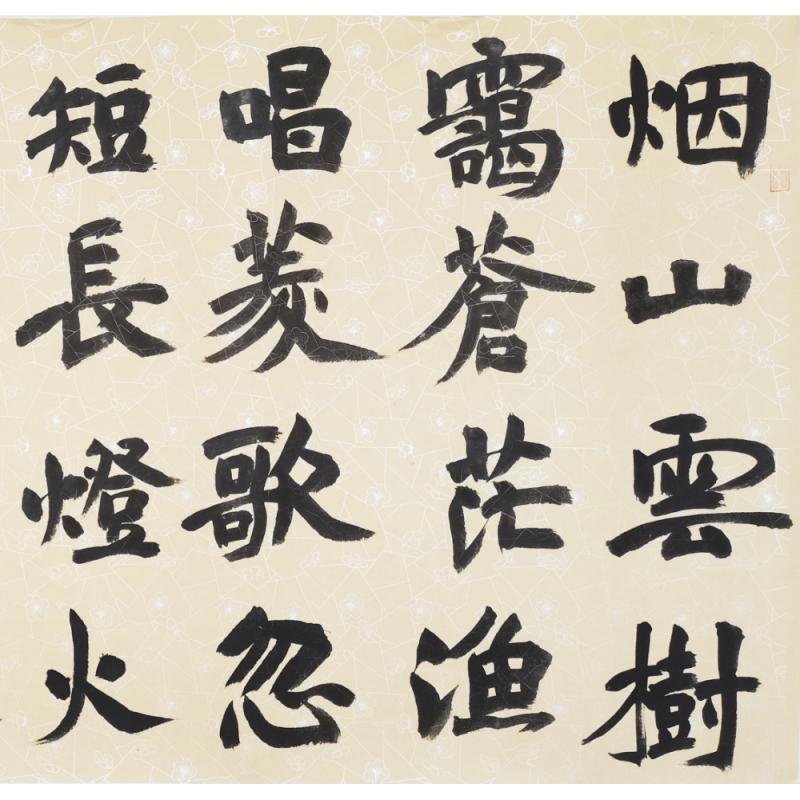 烟山雲樹
靄蒼茫漁
唱菱歌忽
短長燈火